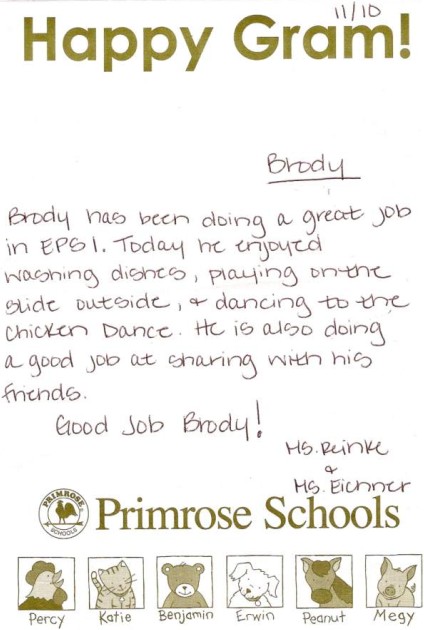 11/10
Happy Gram!
Brody
Brody has been doing a great job
in EPS1. Today he enjoyed
washing dishes, playing on the
slide outside, & dancing to the
Chicken Dance. He is also doing
a good job at sharing with his
friends.
Good Job Brody!
Ms. Reinke
&
Ms. Eichner
PRIMROSE
SCHOOLS
Primrose Schools
Percy Katie Benjamin Erwin Peanut Megy